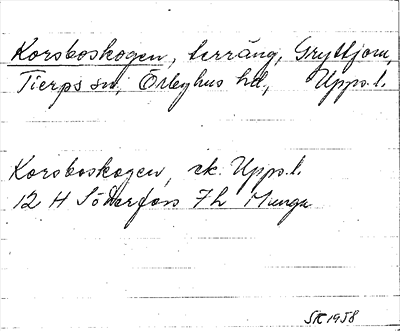 Korsboskogen, terräng, Gryttjom,
Tierps sn, Örbyhus hd, Upps. l.
Korsboskogen, ek. Upps. l.
12 H Söderfors 7h Munga
SK 1958